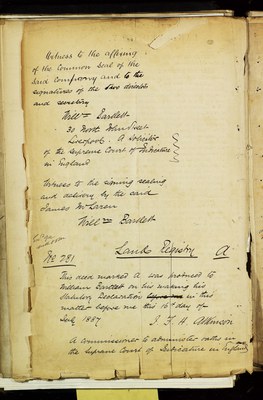 Witness to the affixing
of the Common Seal of the
said Company and to the
signatures of the two directors
and secretary
Willm Bartlett
30 North John Street
Liverpool. A Solicitor
of the Supreme Court of Judicature
in England
Witness to the signing sealing
and delivery by the said
James
Willm Bartlett
No 281
Lands Registry A
This deed marked A was produced to
William Bartlett on his making his
Statutory Declaration before me in this
matter before me this 16th day of
July 1887
J. F. H. Atkinson
A commissioner to administer oaths in
the Supreme Court of Judicature in England